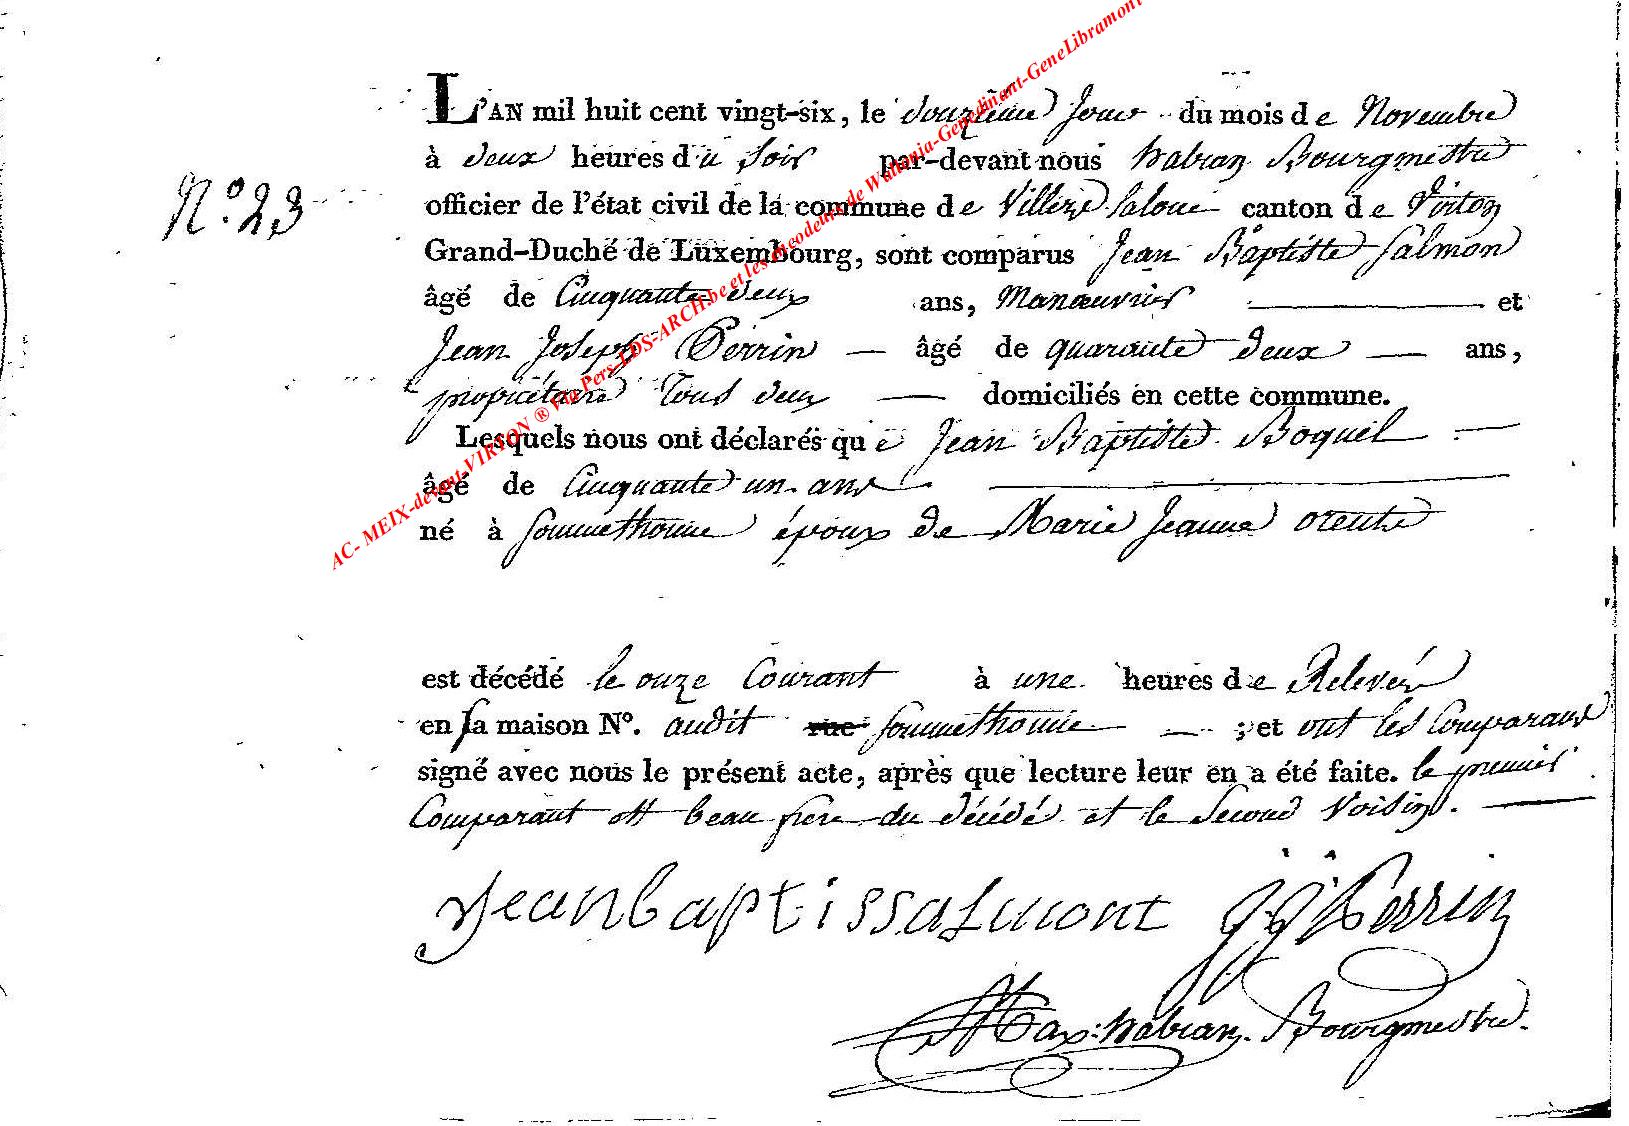 L'AN mil huit cent vingt-six, le douzieme Jour du mois de Novembre
à deux heures du Soir par-devant nous habran Bourgmestre
N.º 23
officier de l'état civil de la commune de Villers Laloue canton de Virton
Grand-Duché de Luxembourg, sont comparus Jean Baptiste Salmon
âgé de Cinquante deux ans, Manœuvrier et
Jean Joseph Perrin — âgé de quarante deux — ans,
propriétaire Tous deux — domiciliés en cette commune.
Lesquels nous ont déclarés que Jean Baptiste Boquel —
âgé de Cinquante un ans
né à Sommethonne époux de Marie Jeanne
est décédé le onze Courant à une heures de Relevée
en sa maison Nº. audit rue Sommethonne — ; et ont les Comparans
signé avec nous le présent acte, après que lecture leur en a été faite. le premier
Comparant est beau frere du décédé et le Second Voisin. —
Jean baptissalmont J J Perrin
Max: habran Bourgmestre.
AC- MEIX-devant-VIRTON ® Via Pers-LDS-ARCH.be et les encodeurs de Wallonia-Genedinant-GeneLibramont